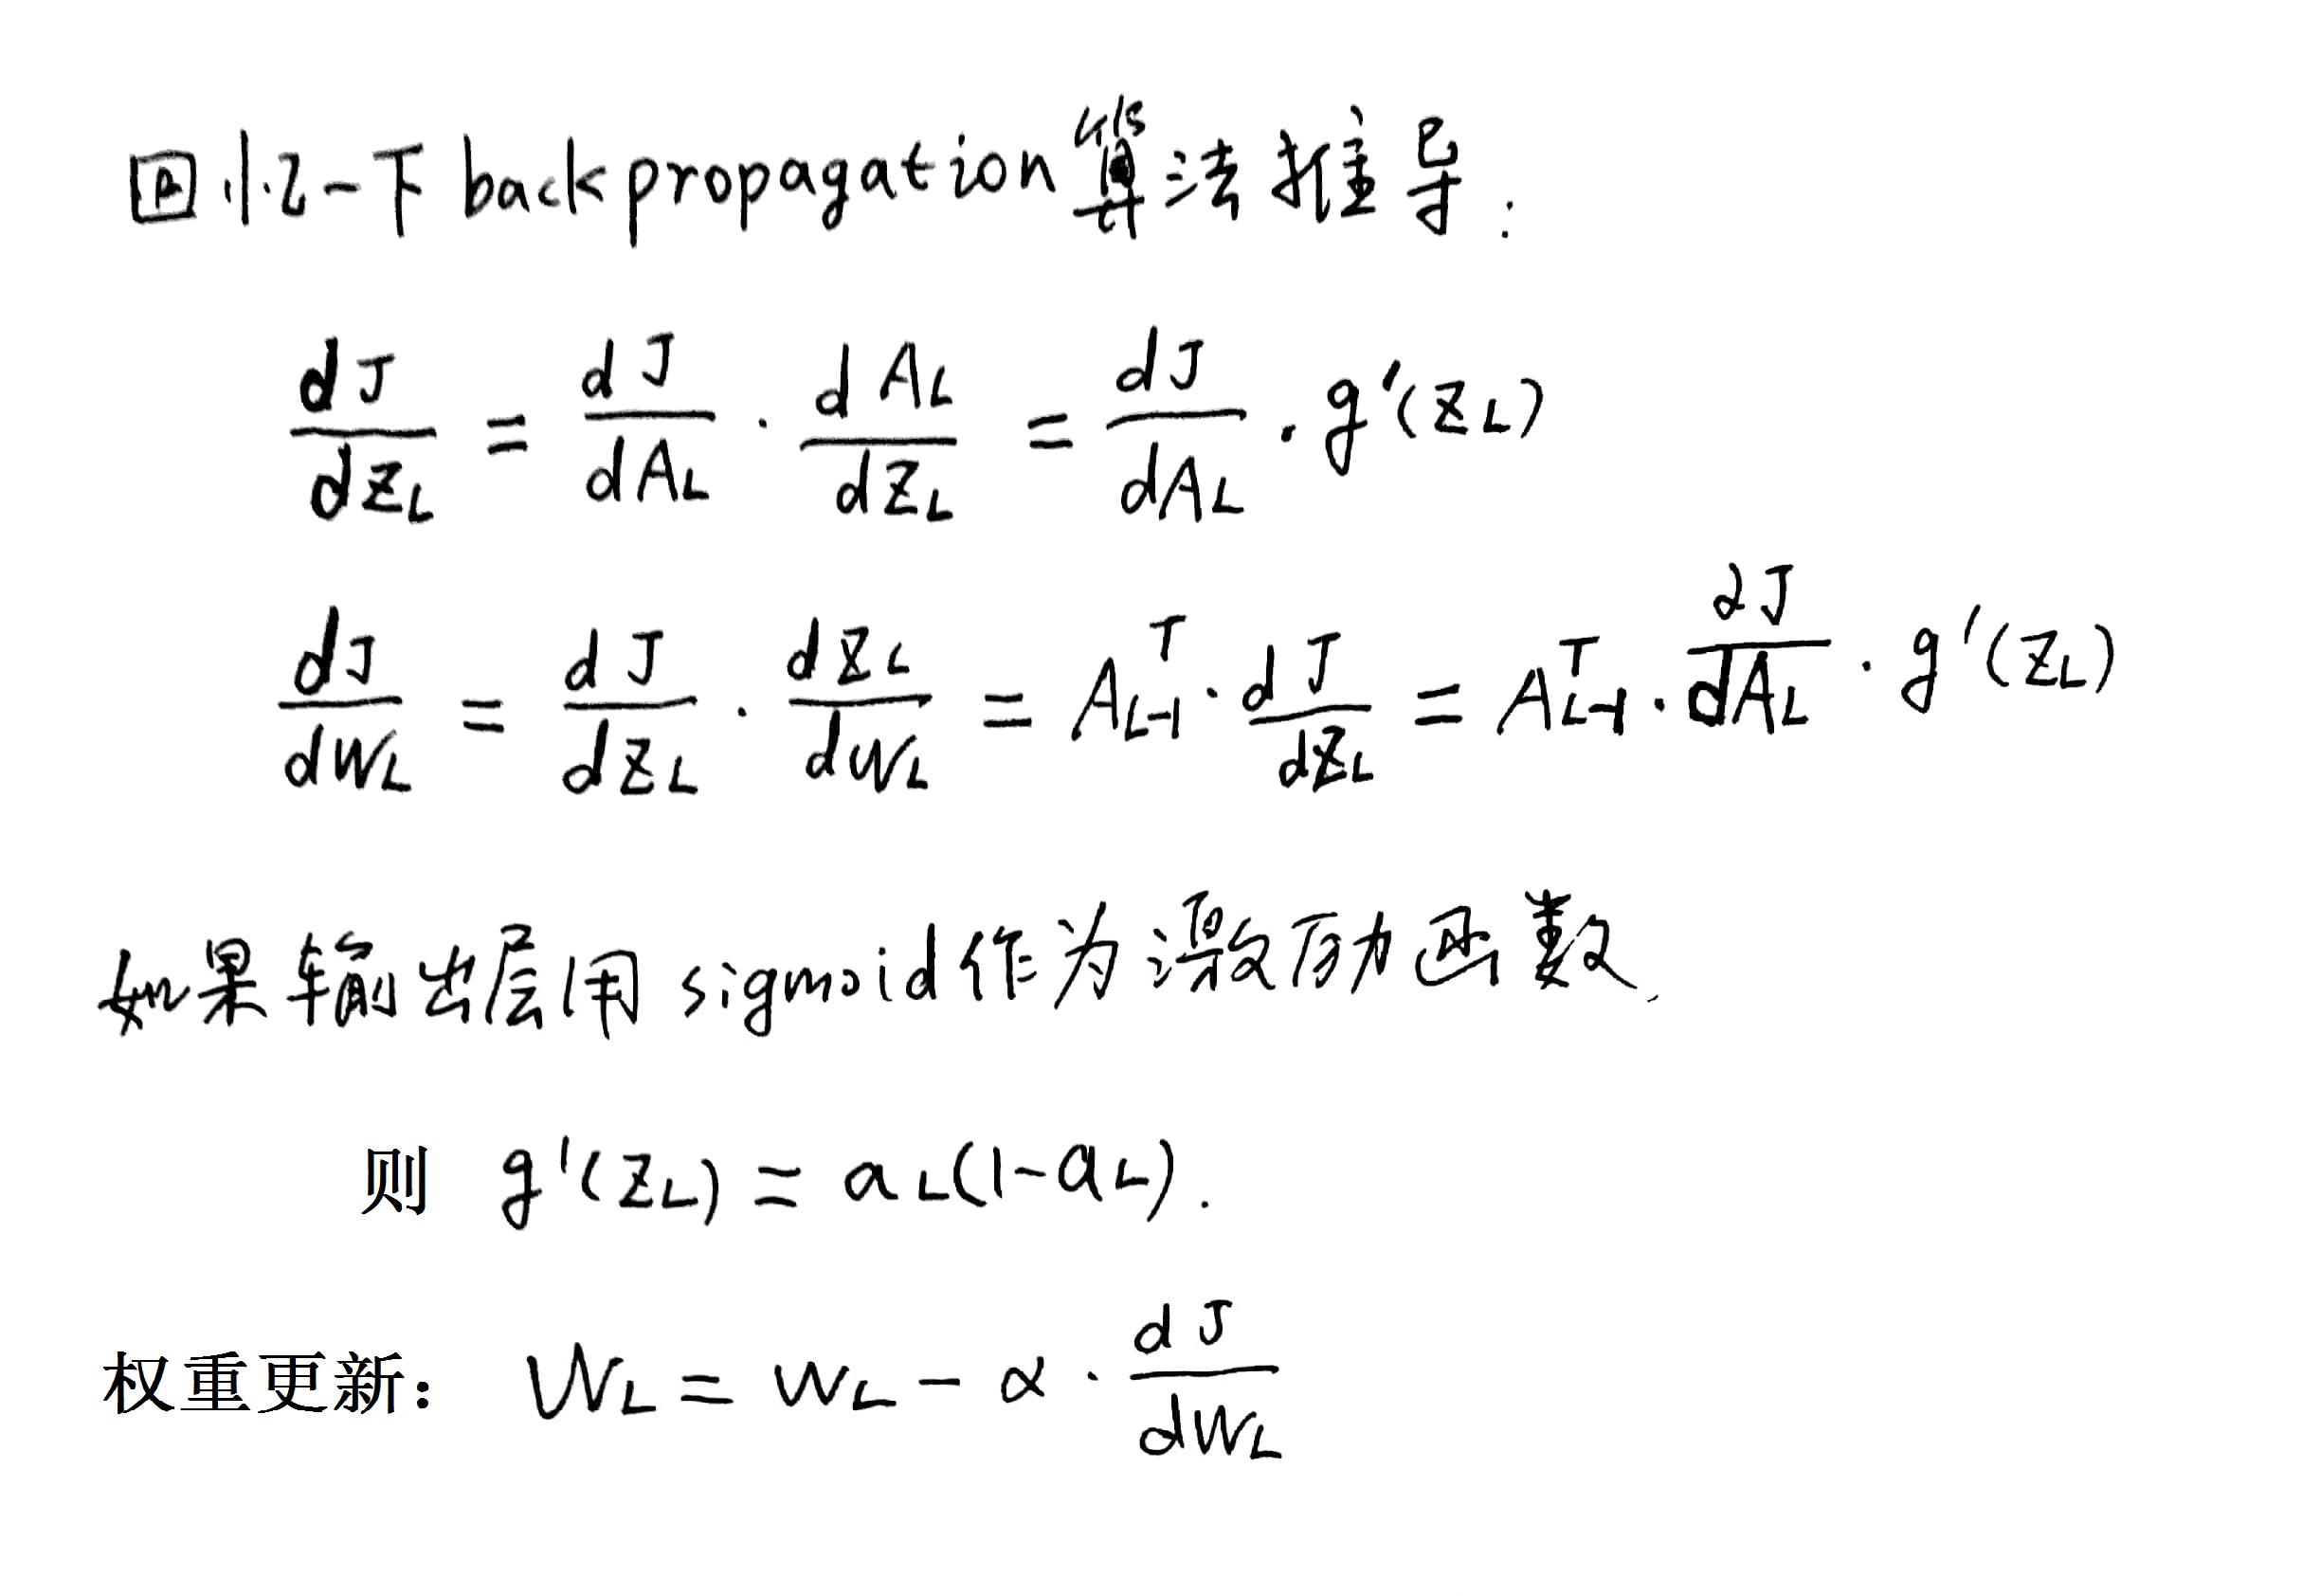 回忆一下 backpropagation算法推导:
dJ/dZL = dJ/dAL · dAL/dZL = dJ/dAL · g'(ZL)
dJ/dWL = dJ/dZL · dZL/dWL = A^T_{L-1} · dJ/dZL = A^T_{L-1} · ∂J/dAL · g'(ZL)
如果输出层用 sigmoid作为激励函数,
则 g'(ZL) = aL(1-aL).
权重更新: WL = WL - α · dJ/dWL